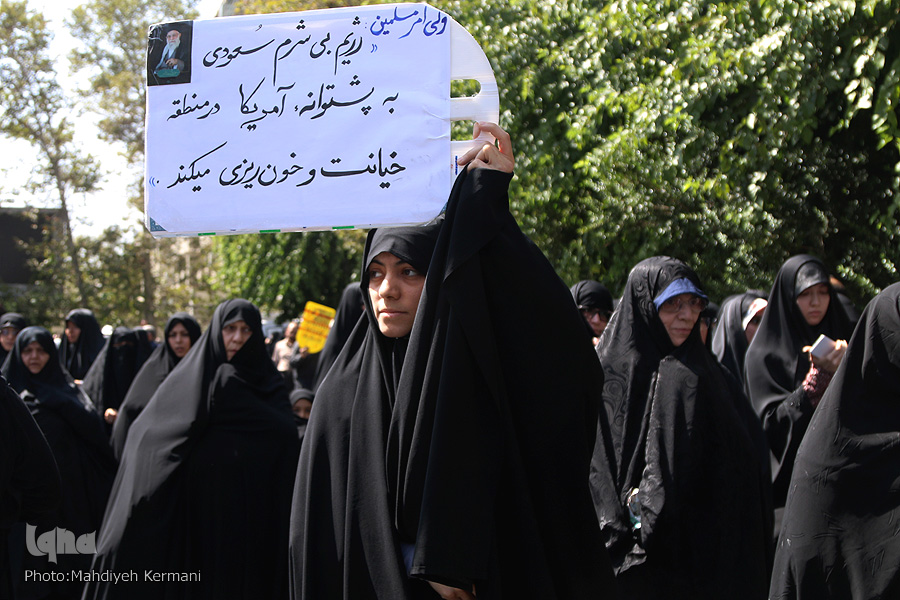 ولی امر مسلمین:
« رژیم بی شرم سعودی
به پشتوانهٔ آمریکا در منطقه
خیانت و خون ریزی میکند . »
iqna
Photo:Mahdiyeh Kermani